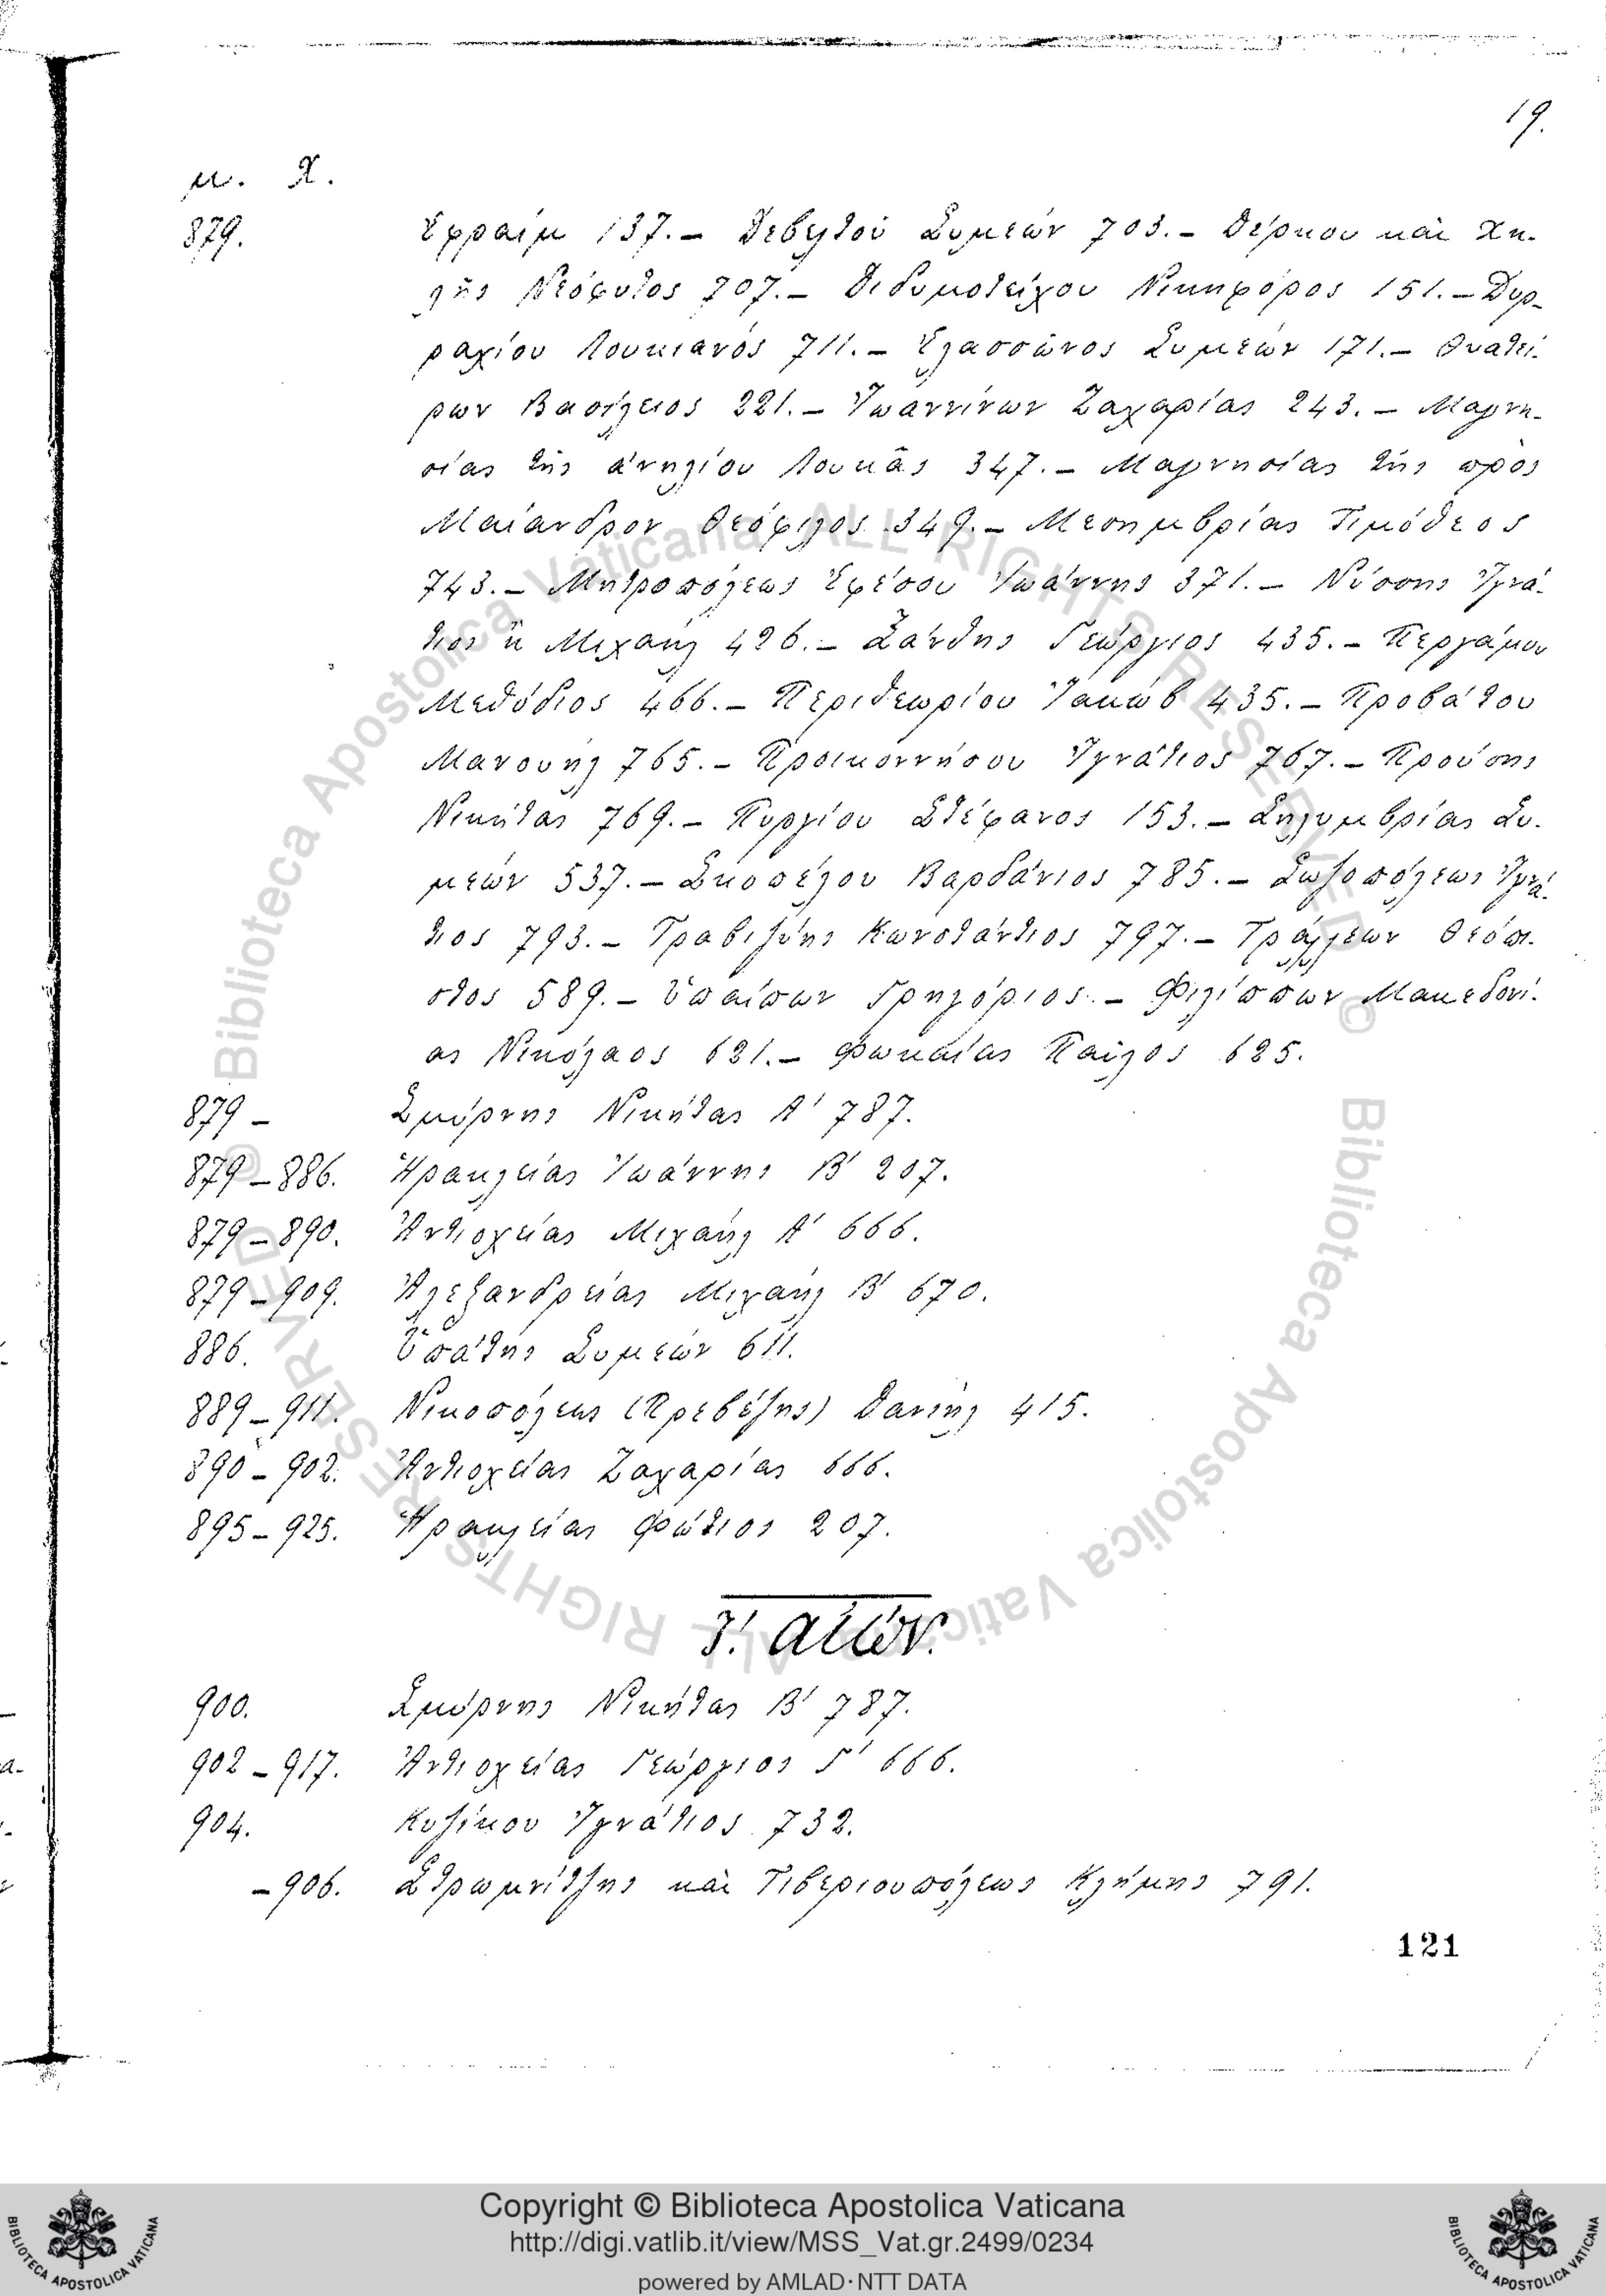 19.
μ. Χ.
879. Ἐφραίμ 137.– Δεβελτοῦ Συμεών 703.– Δέρκου καὶ Χη-
λῆς Νεόφυτος 707.– Διδυμοτείχου Νικηφόρος 151.– Δυρ-
ραχίου Λουκιανός 711.– Ἐλασσῶνος Συμεών 171.– Θυατεί-
ρων Βασίλειος 221.– Ἰωαννίνων Ζαχαρίας 243.– Μαγνη-
σίας τῆς ἀνηλίου Λουκᾶς 347.– Μαγνησίας τῆς πρὸς
Μαίανδρον Θεόφιλος 349.– Μεσημβρίας Τιμόθεος
743.– Μητροπόλεως Ἐφέσου Ἰωάννης 371.– Νύσσης Ἰγνά-
τιος ἢ Μιχαήλ 426.– Ξάνθης Γεώργιος 435.– Περγάμου
Μεθόδιος 466.– Περιθεωρίου Ἰακώβ 435.– Προβάτου
Μανουήλ 765.– Προικοννήσου Ἰγνάτιος 767.– Προύσης
Νικήτας 769.– Πυργίου Στέφανος 153.– Σηλυμβρίας Συ-
μεών 537.– Σκοπέλου Βαρδάνιος 785.– Σωζοπόλεως Ἰγνά-
τιος 793.– Τραβιζύης Κωνστάντιος 797.– Τράλλεων Θεόπι-
στος 589.– Ὑπαίπων Γρηγόριος.– Φιλίππων Μακεδονί-
ας Νικόλαος 621.– Φωκαίας Παῦλος 625.
879 – Σμύρνης Νικήτας Α' 787.
879–886. Ἡρακλείας Ἰωάννης Β' 207.
879–890. Ἀντιοχείας Μιχαήλ Α' 666.
879–909. Ἀλεξανδρείας Μιχαήλ Β' 670.
886. Ὑπάτης Συμεών 611.
889–911. Νικοπόλεως (Πρεβέζης) Δανιήλ 415.
890–902. Ἀντιοχείας Ζαχαρίας 666.
895–925. Ἡρακλείας Φώτιος 207.
Ι'. αἰών.
900. Σμύρνης Νικήτας Β' 787.
902–917. Ἀντιοχείας Γεώργιος Γ' 666.
904. Κυζίκου Ἰγνάτιος 732.
–906. Στρωμνίτζης καὶ Τιβεριουπόλεως Κλήμης 791.
121
© Biblioteca Apostolica Vaticana ALL RIGHTS RESERVED
© Biblioteca Apostolica Vaticana ALL RIGHTS RESERVED
Copyright © Biblioteca Apostolica Vaticana
http://digi.vatlib.it/view/MSS_Vat.gr.2499/0234
powered by AMLAD·NTT DATA
BIBLIOTECA APOSTOLICA VATICANA
BIBLIOTECA APOSTOLICA VATICANA